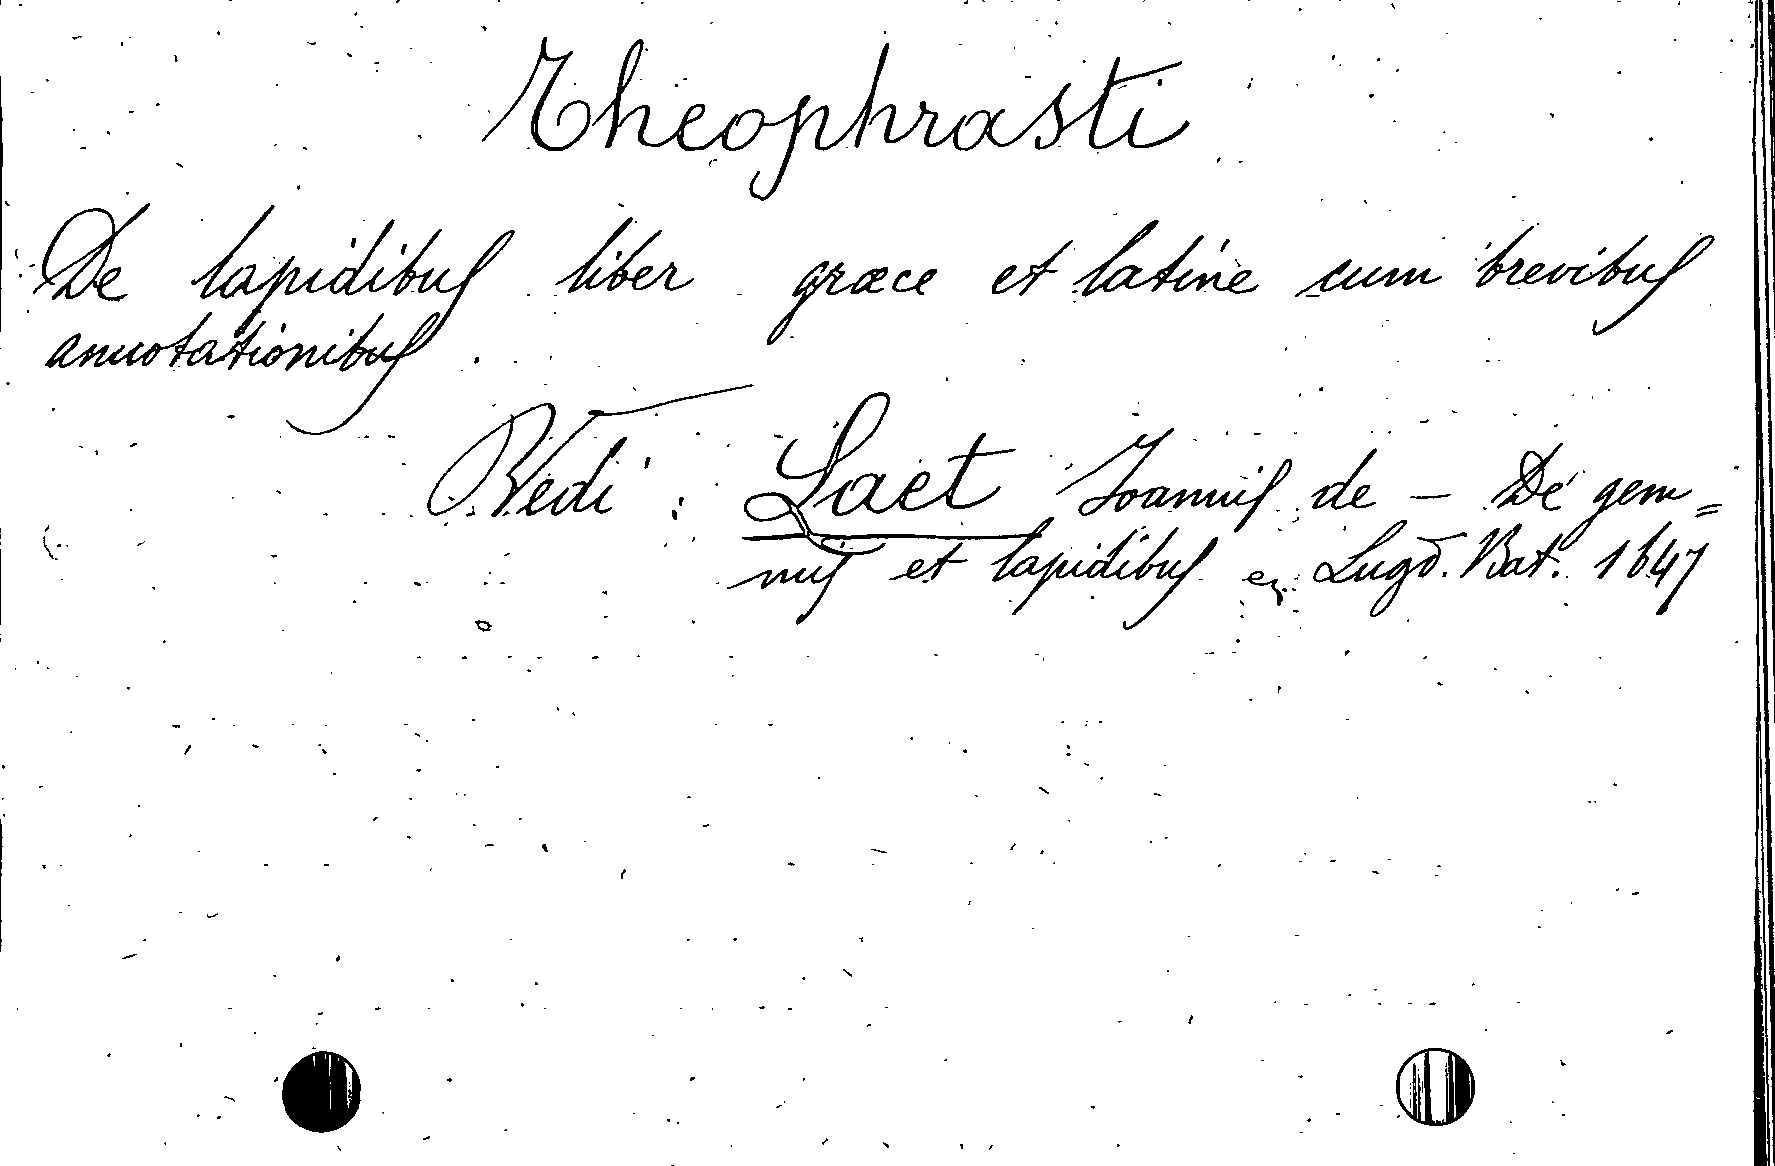 Theophrasti
De lapidibus liber græce et latine cum brevibus
annotationibus.
Vedi: Laet Joannis de — De gem=
mis et lapidibus Lugd. Bat. 1647